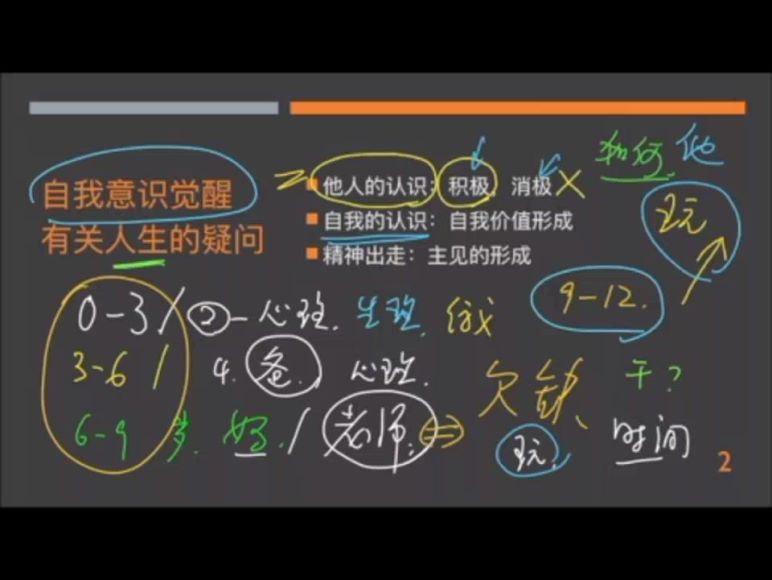 自我意识觉醒
有关人生的疑问
他人的认识：积极、消极
自我的认识：自我价值形成
精神出走：主见的形成
如何 他
玩
0-3 / ② - 心理. 生理.
9-12.
3-6 / 4. 爸. 心理.
欠缺 干？
6-9 岁. 妈. / 老师.
玩. 时间
2